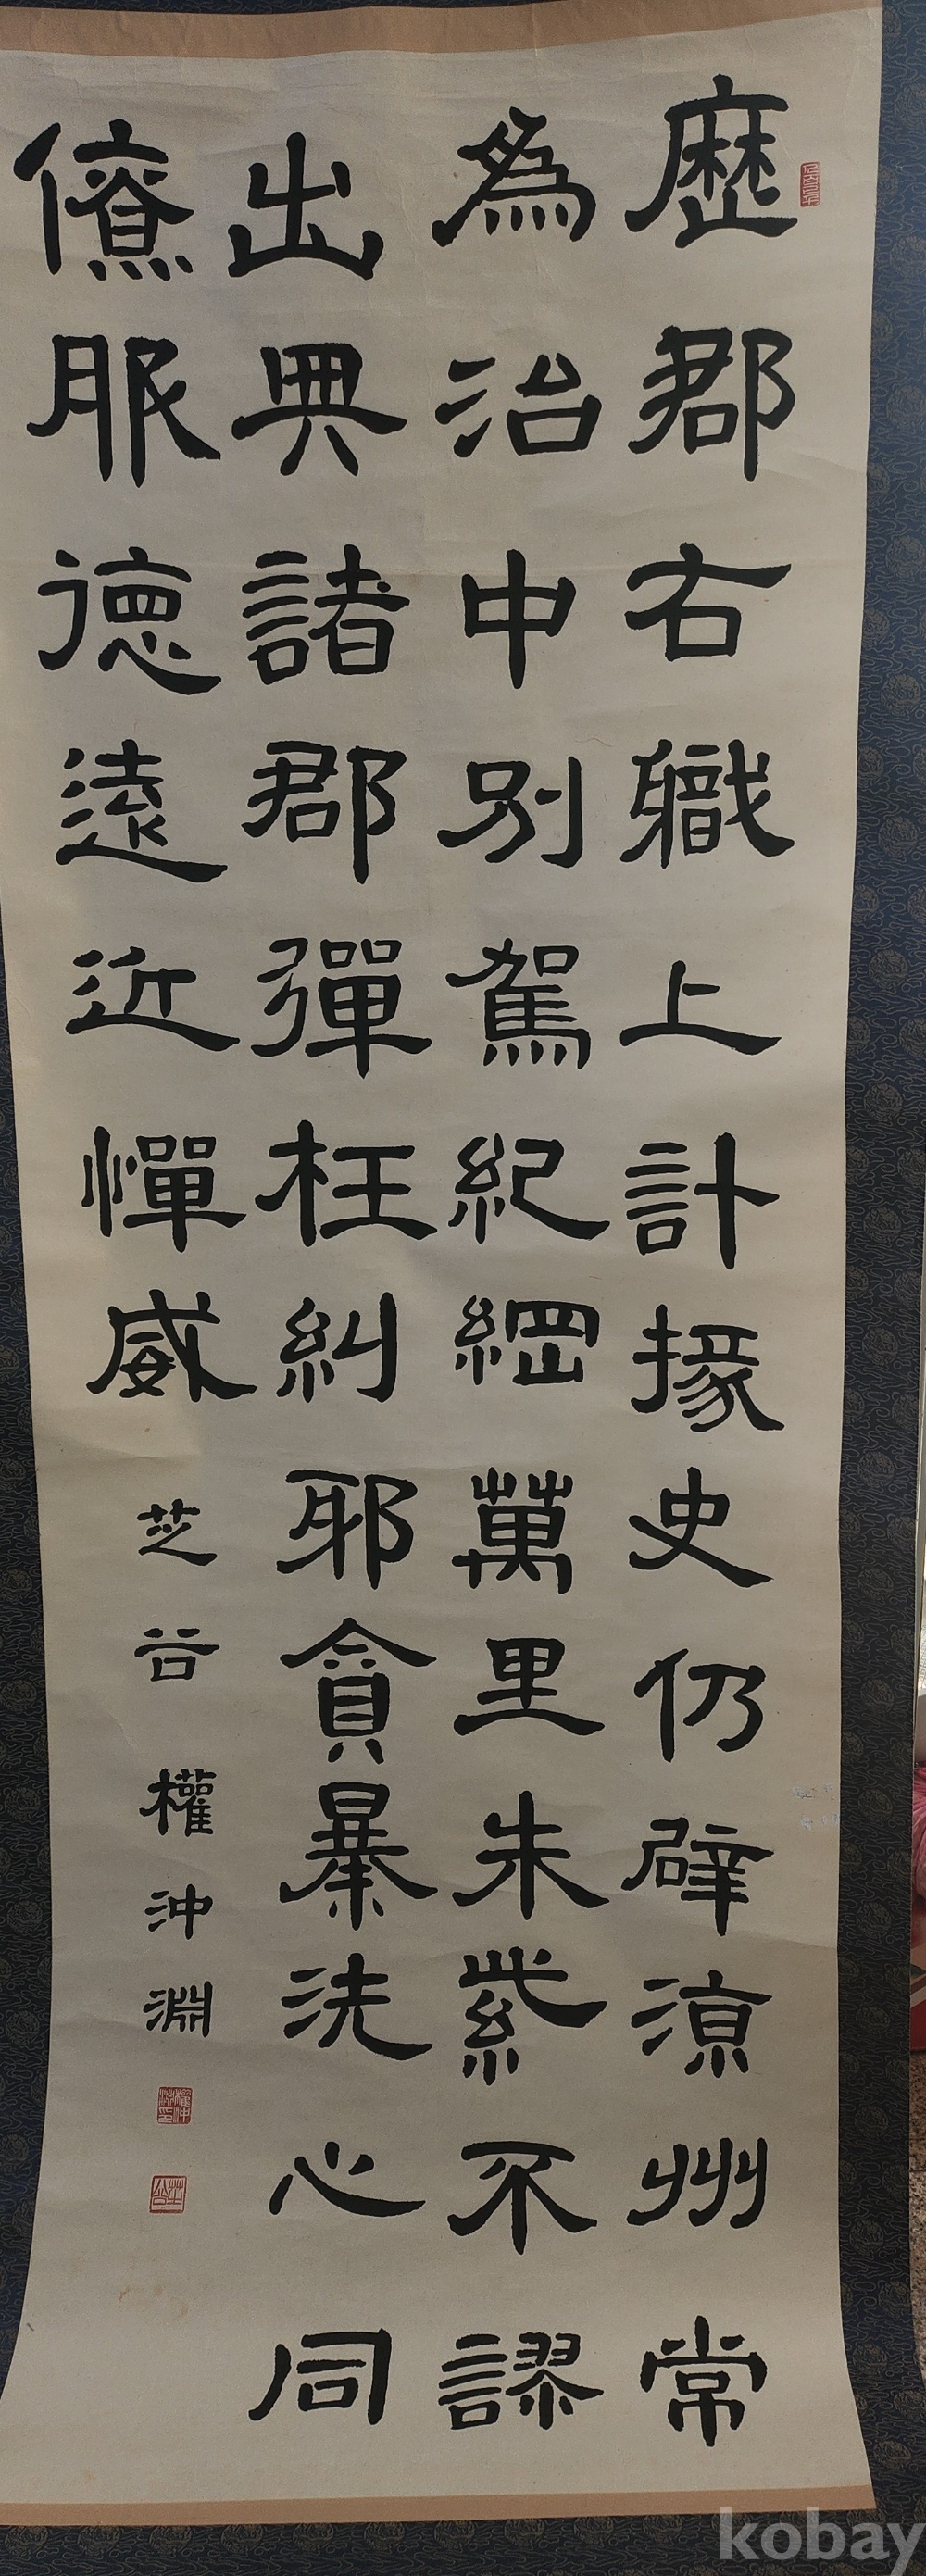 歷郡右職上計掾史仍辟涼州常
為治中別駕紀綱萬里朱紫不謬
出典諸郡彈枉糾邪貪暴洗心同
僚服德遠近憚威
芝谷 權沖淵
kobay